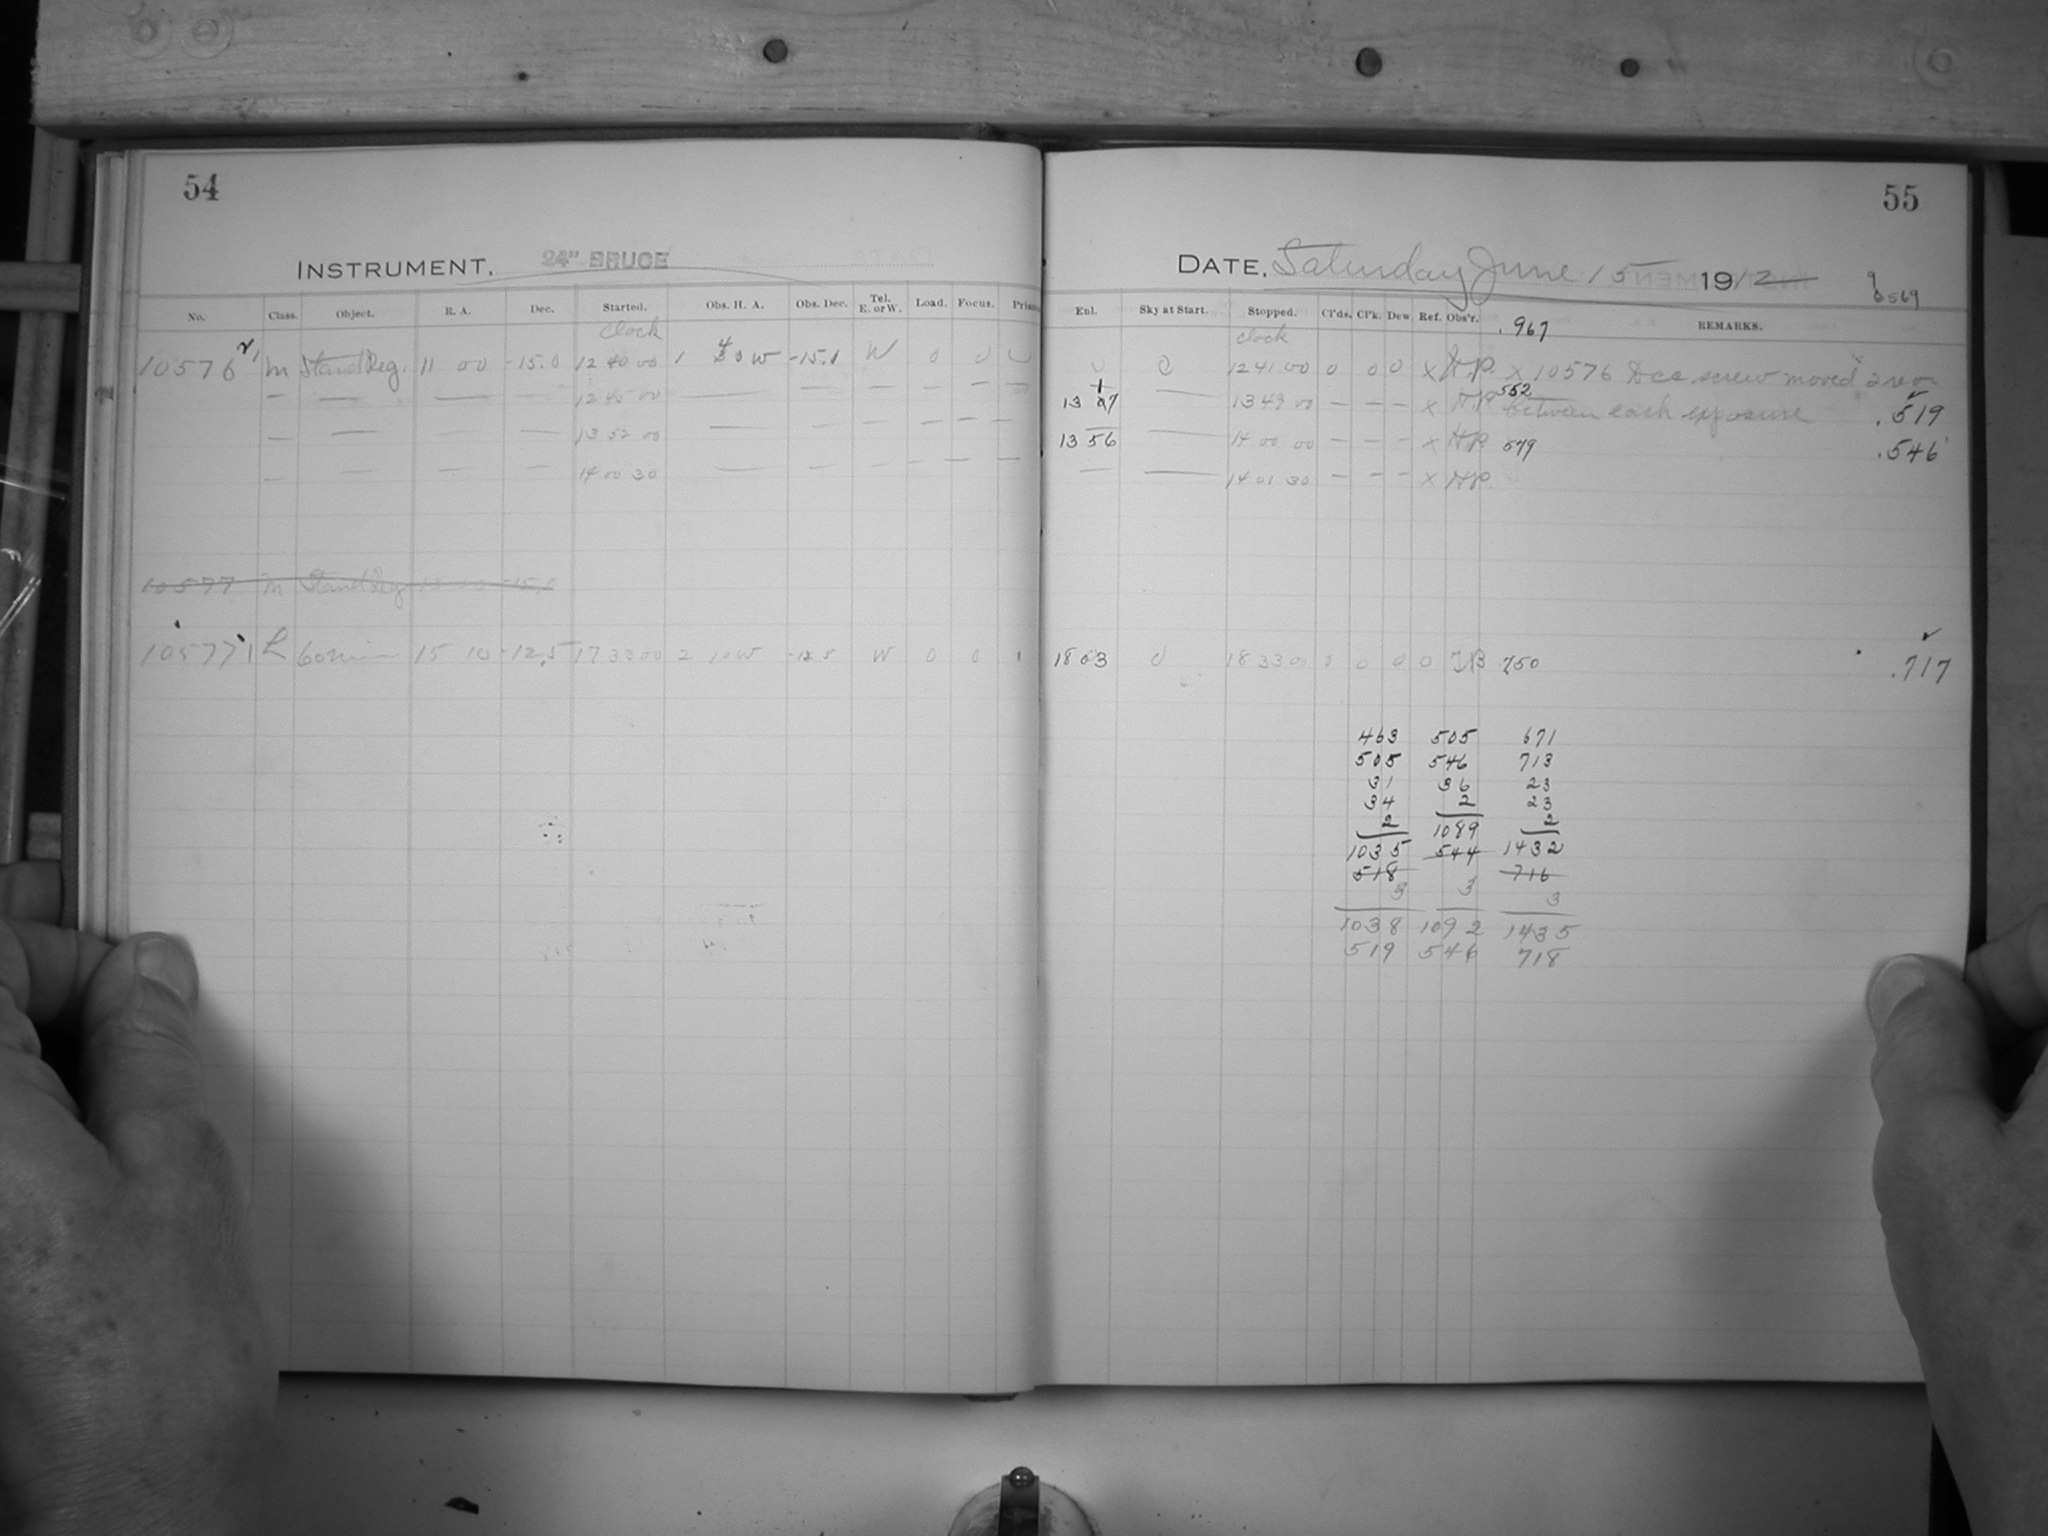 54
INSTRUMENT. 24" BRUCE
No. Class. Object. R. A. Dec. Started. Obs. H. A. Obs. Dec. Tel. E. or W. Load. Focus.
clock
10576 m Stand Reg. 11 00 -15.0 12 40 00 1 40 W -15.1 W 0 0
— — — — 12 45 00 — — — — — —
— — — — 13 52 00 — — — — —
— — — — 14 00 30 — — — — — —
10577 m Stand Reg -15.0
10577 L 60 min 15 10 -12.5 17 33 00 2 10 W -12.5 W 0 0 1
55
DATE, Saturday June 15 1912
9
8569
Enl. Sky at Start. Stopped. Cl'ds. Cl'k. Dew. Ref. Obs'r. REMARKS.
.967
clock
0 12 41 00 0 0 0 x H.P. x 10576 Dec screw moved 2 rev.
13 17 — 13 49 00 — — — x H.P. 552 between each exposure .519
13 56 — 14 00 00 — — — x H.P. 579 .546
— — 14 01 30 — — — x H.P.
18 03 0 18 33 00 0 0 0 0 750 .717
463 505 671
505 546 713
31 36 23
34 2 23
2 1089 2
1035 544 1432
518 716
3 3 3
1038 1092 1435
519 546 718